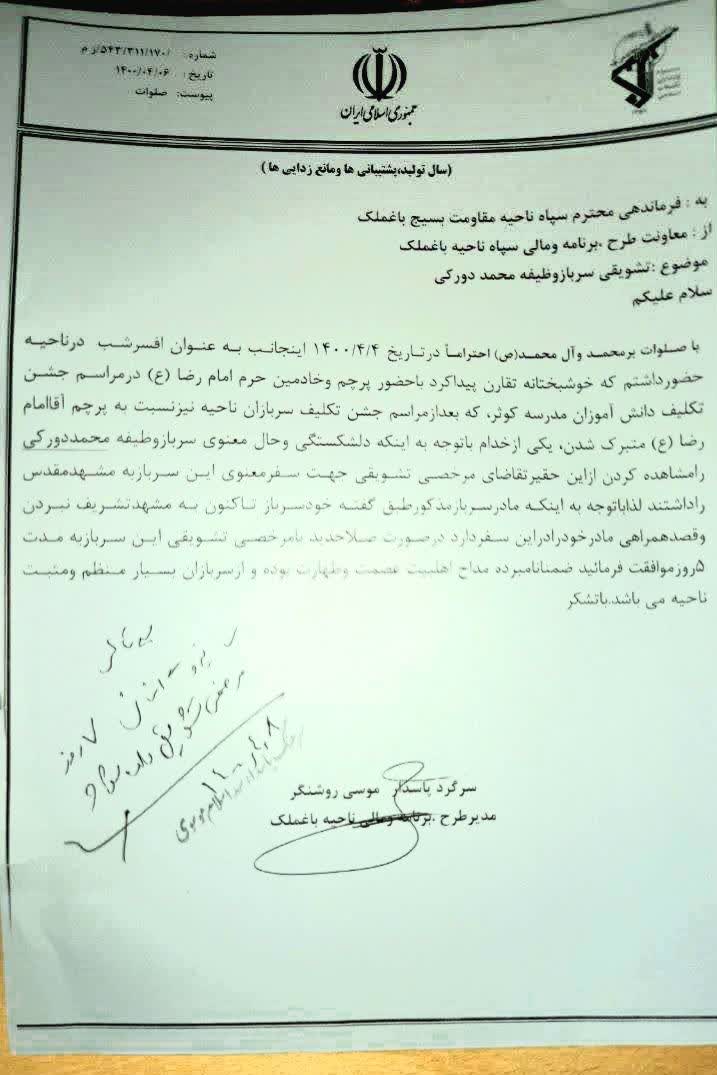 شماره: ۵۴۳/۳۱۱/۱۷۰/ز م
تاریخ: ۱۴۰۰/۰۴/۰۶
پیوست: صلوات
جمهوری اسلامی ایران
(سال تولید،پشتیبانی ها ومانع زدایی ها)
به : فرماندهی محترم سپاه ناحیه مقاومت بسیج باغملک
از : معاونت طرح ،برنامه ومالی سپاه ناحیه باغملک
موضوع :تشویقی سربازوظیفه محمد دورکی
سلام علیکم
با صلوات برمحمد وآل محمد(ص) احتراماً درتاریخ ۱۴۰۰/۴/۴ اینجانب به عنوان افسرشب درناحیه
حضورداشتم که خوشبختانه تقارن پیداکرد باحضور پرچم وخادمین حرم امام رضا (ع) درمراسم جشن
تکلیف دانش آموزان مدرسه کوثر، که بعدازمراسم جشن تکلیف سربازان ناحیه نیزنسبت به پرچم آقاامام
رضا (ع) متبرک شدن، یکی ازخدام باتوجه به اینکه دلشکستگی وحال معنوی سربازوطیفه محمددورکی
رامشاهده کردن ازاین حقیرتقاضای مرحصی تشویقی جهت سفرمعنوی این سربازبه مشهدمقدس
راداشتند لذاباتوجه به اینکه مادرسربازمذکورطبق گفته خودسرباز تاکنون به مشهدتشریف نبردن
وقصدهمراهی مادرخودرادراین سفردارد درصورت صلاحدید بامرخصی تشویقی این سربازبه مدت
۵روزموافقت فرمائید ضمنانامبرده مداح اهلبیت عصمت وطهارت بوده و ازسربازان بسیار منظم ومثبت
ناحیه می باشد.باتشکر
۷ روز
سرگرد پاسدار موسی روشنگر
مدیرطرح ،برنامه ومالی ناحیه باغملک